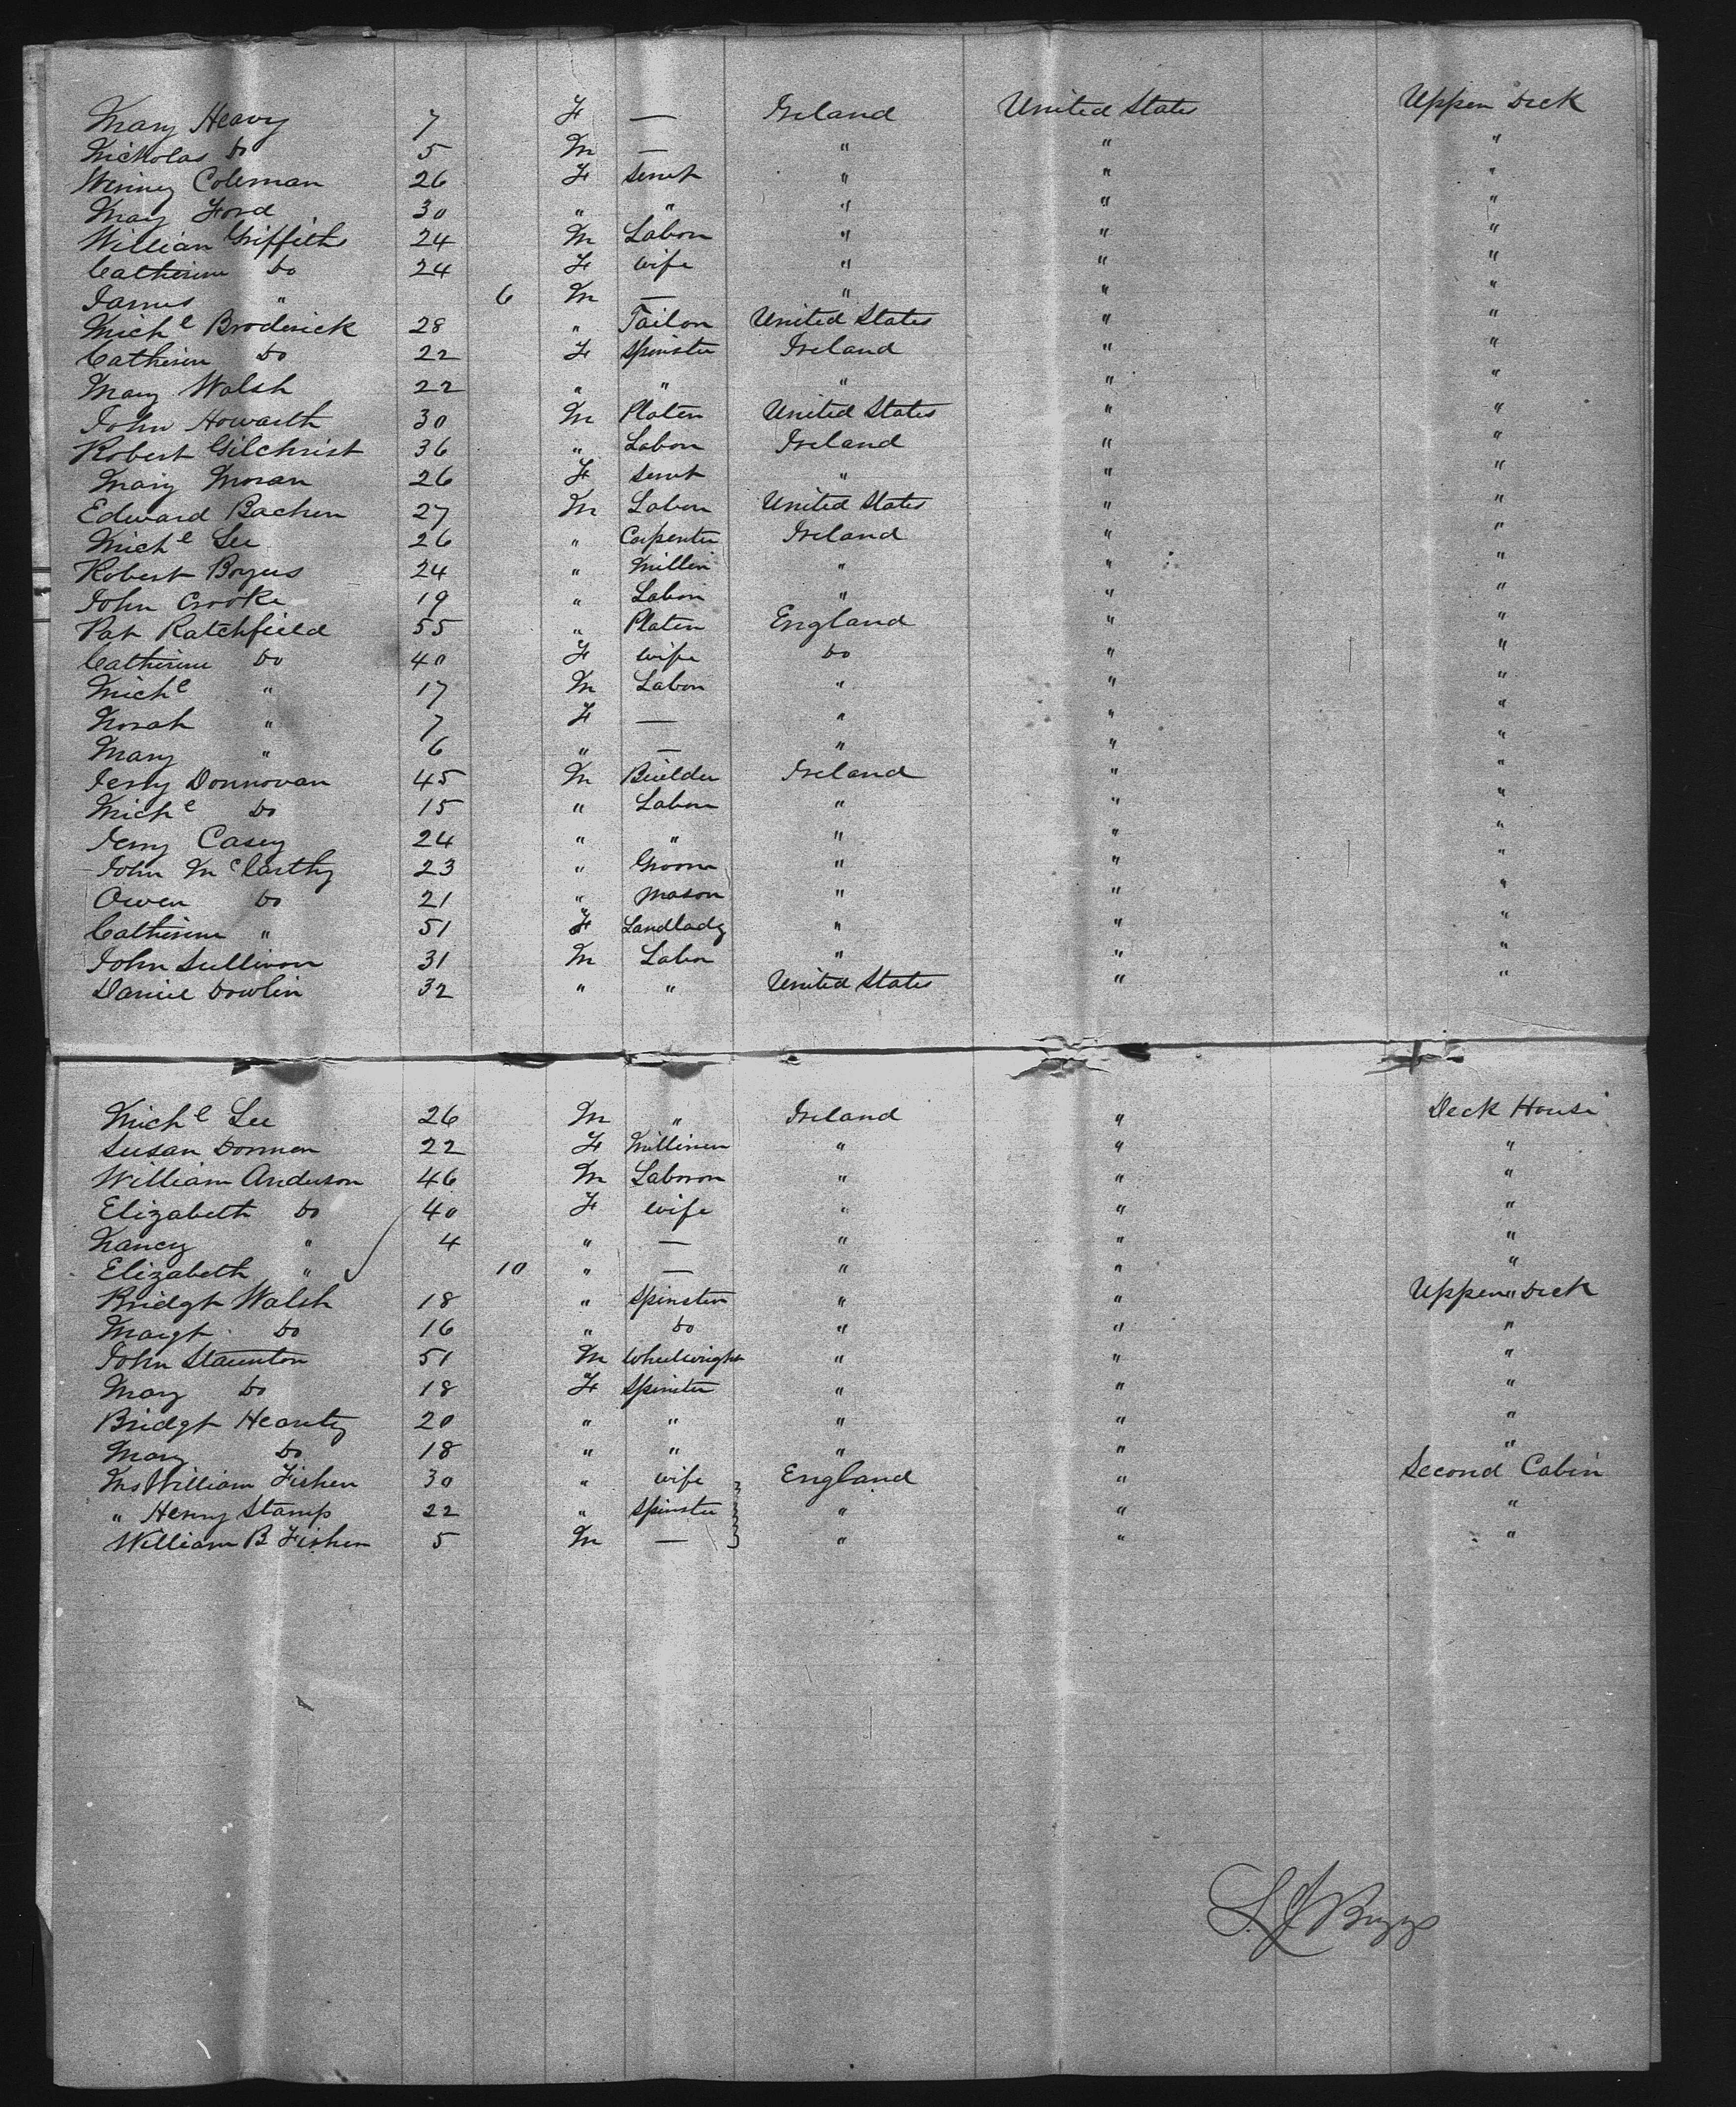 Mary Heavy 7 F — Ireland United States Upper Deck
Nicholas Do 5 M — " " "
Winney Coleman 26 F Servt " " "
Mary Ford 30 " " " " "
William Griffiths 24 M Labor " " "
Catherine Do 24 F wife " " "
James " 6 M — " " "
Michl Broderick 28 " Tailor United States " "
Catherine Do 22 F Spinster Ireland " "
Mary Walsh 22 " " " " "
John Howarth 30 M Plater United States " "
Robert Gilchrist 36 " Labor Ireland " "
Mary Moran 26 F Servt " " "
Edward Bachen 27 M Labor United States " "
Michl Lee 26 " Carpenter Ireland " "
Robert 24 " Miller " " "
John Crooke 19 " Labor " " "
Pat Ratchfield 55 " Plater England " "
Catherine Do 40 F wife Do " "
Michl " 17 M Labor " " "
Norah " 7 F — " " "
Mary " 6 " — " " "
Jerry Donnovan 45 M Builder Ireland " "
Michl Do 15 " Labor " " "
Jerry Casey 24 " " " " "
John McCarthy 23 " Groom " " "
Owen Do 21 " Mason " " "
Catherine " 51 F Landlady " " "
John Sullivan 31 M Labor " " "
Daniel Dowlin 32 " " United States " "
Michl Lee 26 M " Ireland " Deck House
Susan Dormer 22 F Milliner " " "
William Anderson 46 M Laboror " " "
Elizabeth Do 40 F wife " " "
Nancy " 4 " — " " "
Elizabeth " 10 " — " " "
Bridgt Walsh 18 " Spinster " " Upper Deck
Margt Do 16 " Do " " "
John Staunton 51 M Wheelwright " " "
Mary Do 18 F Spinster " " "
Bridgt Hearty 20 " " " " "
Mary Do 18 " " " " "
Mrs William Fisher 30 " wife England " Second Cabin
" Henry Stamp 22 " Spinster " " "
William B Fisher 5 M — " " "